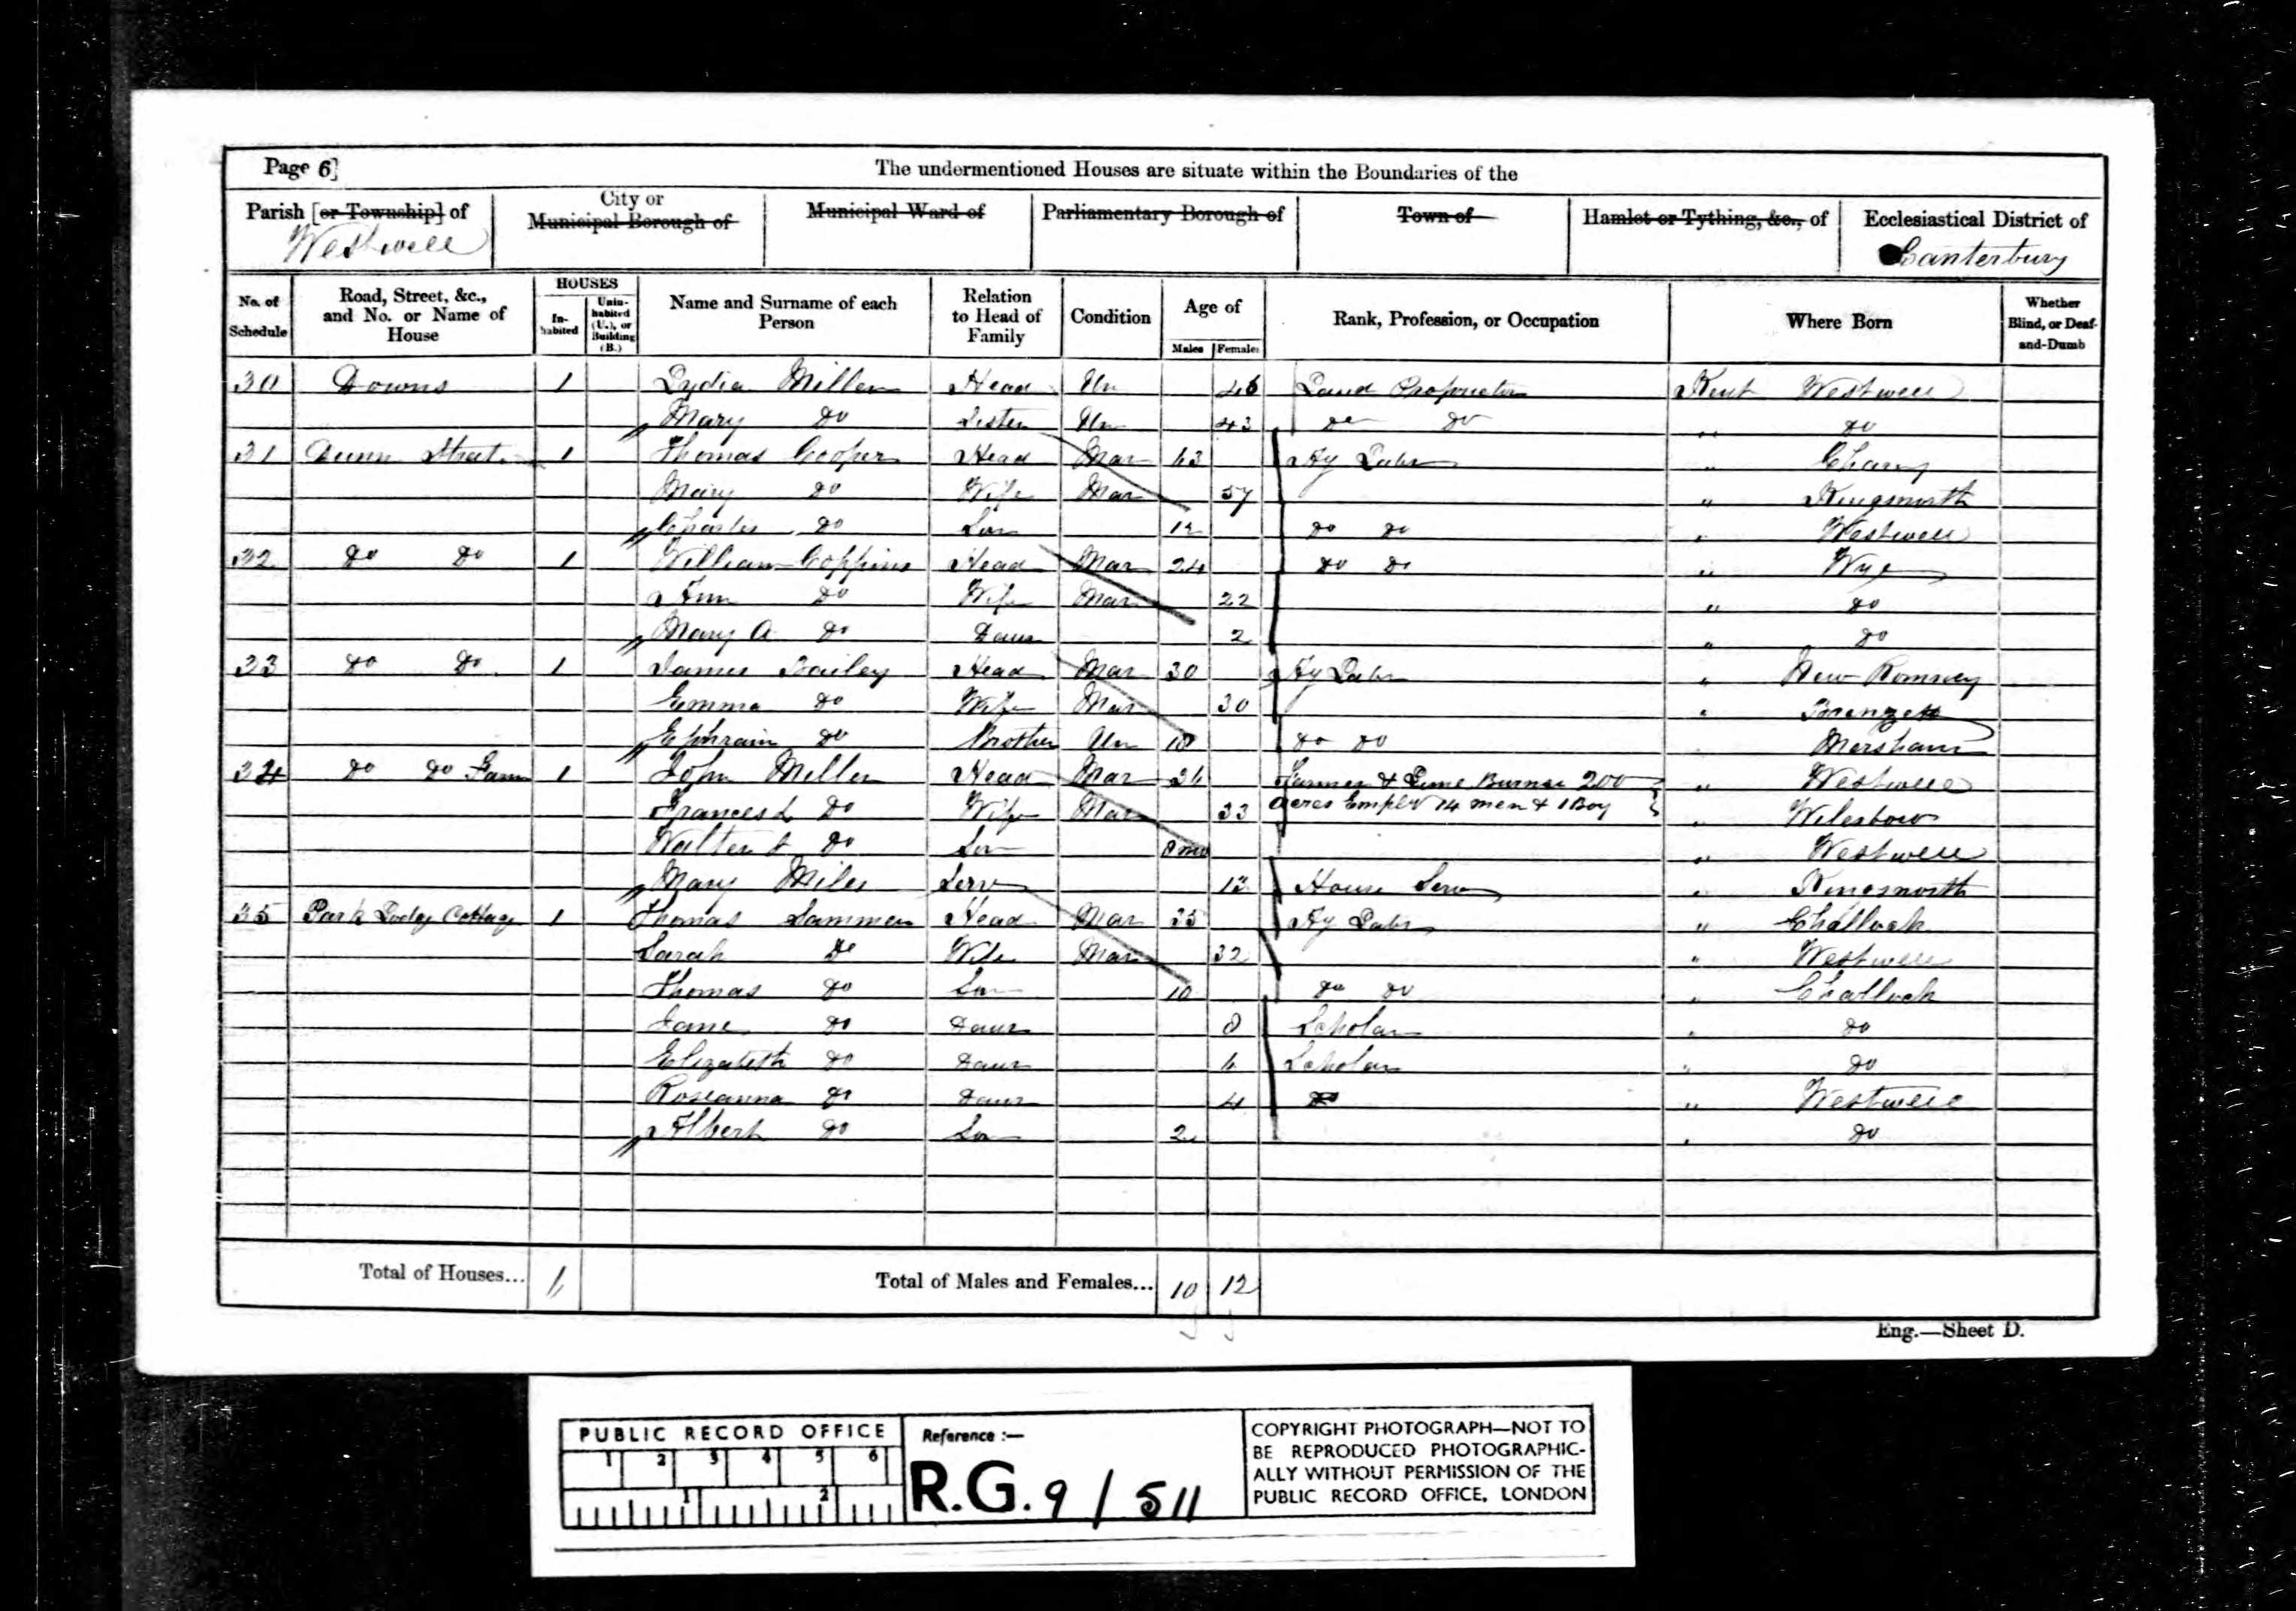 Page 6]
The undermentioned Houses are situate within the Boundaries of the
Parish [or Township] of Westwell
City or Municipal Borough of
Municipal Ward of
Parliamentary Borough of
Town of
Hamlet or Tything, &c., of
Ecclesiastical District of Canterbury
No. of Schedule
Road, Street, &c., and No. or Name of House
HOUSES
In-habited
Unin-habited (U.), or Building (B.)
Name and Surname of each Person
Relation to Head of Family
Condition
Age of
Males
Females
Rank, Profession, or Occupation
Where Born
Whether Blind, or Deaf-and-Dumb
30 Downs 1 Lydia Miller Head Un 46 Land Proprietor Kent Westwell
Mary Do Sister Un 43 Do Do " Do
31 Dunn Street 1 Thomas Cooper Head Mar 63 Ag Labr " Charing
Mary Do Wife Mar 57 " Kingsnorth
Charles Do Son 12 Do Do " Westwell
32 Do Do 1 William Coppins Head Mar 24 Do Do " Wye
Ann Do Wife Mar 22 " Do
Mary A Do Daur 2 " Do
33 Do Do 1 James Bailey Head Mar 30 Ag Labr " New Romney
Emma Do Wife Mar 30 " Brenzett
Ephraim Do Brother Un Do Do " Mersham
34 Do Do Farm 1 John Miller Head Mar Farmer & Lime Burner 200 " Westwell
Frances L Do Wife Mar 33 acres Empl 14 men & 1 Boy " Willesboro
Walter Do Son 8 mo " Westwell
Mary Miles Serv 13 House Serv " Kingsnorth
35 Park Lodge Cottage 1 Thomas Sammen Head Mar 35 Ag Labr " Challock
Sarah Do Wife Mar 32 " Westwell
Thomas Do Son 10 Do Do " Challock
Jane Do Daur 8 Scholar " Do
Elizabeth Do Daur 6 Scholar " Do
Roseanna Do Daur 4 Do " Westwell
Albert Do Son 2 " Do
Total of Houses...
Total of Males and Females... 10 12
Eng.—Sheet D.
PUBLIC RECORD OFFICE
1 2 3 4 5 6
1 2
Reference :—
R.G. 9 / 511
COPYRIGHT PHOTOGRAPH—NOT TO
BE REPRODUCED PHOTOGRAPHIC-
ALLY WITHOUT PERMISSION OF THE
PUBLIC RECORD OFFICE, LONDON